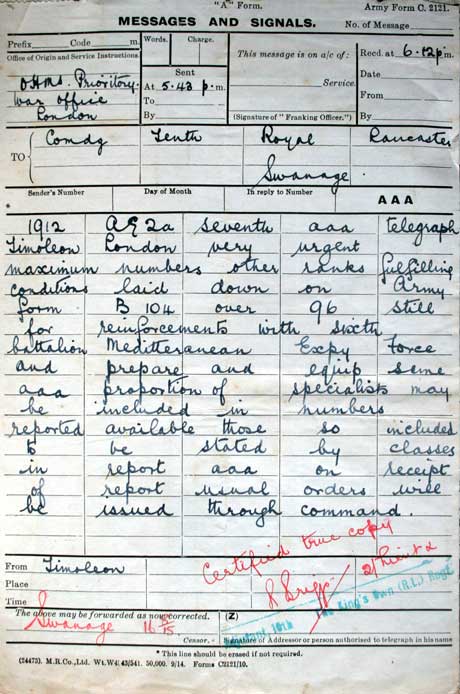 "A" Form.
Army Form C. 2121.
MESSAGES AND SIGNALS.
No. of Message
Prefix Code m.
Words. Charge.
This message is on a/c of:
Recd. at 6.12 p m.
Office of Origin and Service Instructions.
OHMS. Prioritory.
War office
London
Sent
At 5.43 p.m.
To
By
Service.
(Signature of "Franking Officer.")
Date
From
By
TO Comdg Tenth Royal Lancaster
Swanage
Sender's Number Day of Month In reply to Number AAA
1912 AG2a seventh aaa telegraph
Timoleon London very urgent
maximum numbers other ranks fulfilling
conditions laid down on Army
form B 104 over 96 still
for reinforcements with sixth
battalion Mediteranean Expy Force
and prepare and equip same
aaa proportion of specialists may
be included in numbers
reported available those so included
to be stated by classes
in report aaa on receipt
of report usual orders will
be issued through command.
From Timoleon
Place
Time
Certified true copy
R Brigg 2/Lieut &
The above may be forwarded as now corrected. (Z)
Swanage 16 5/15
King's Own (R.L.) Regt.
Censor. Signature of Addressor or person authorised to telegraph in his name
* This line should be erased if not required.
(24473). M.R.Co., Ltd. Wt.W4143/541. 50,000. 9/14. Forms C2121/10.